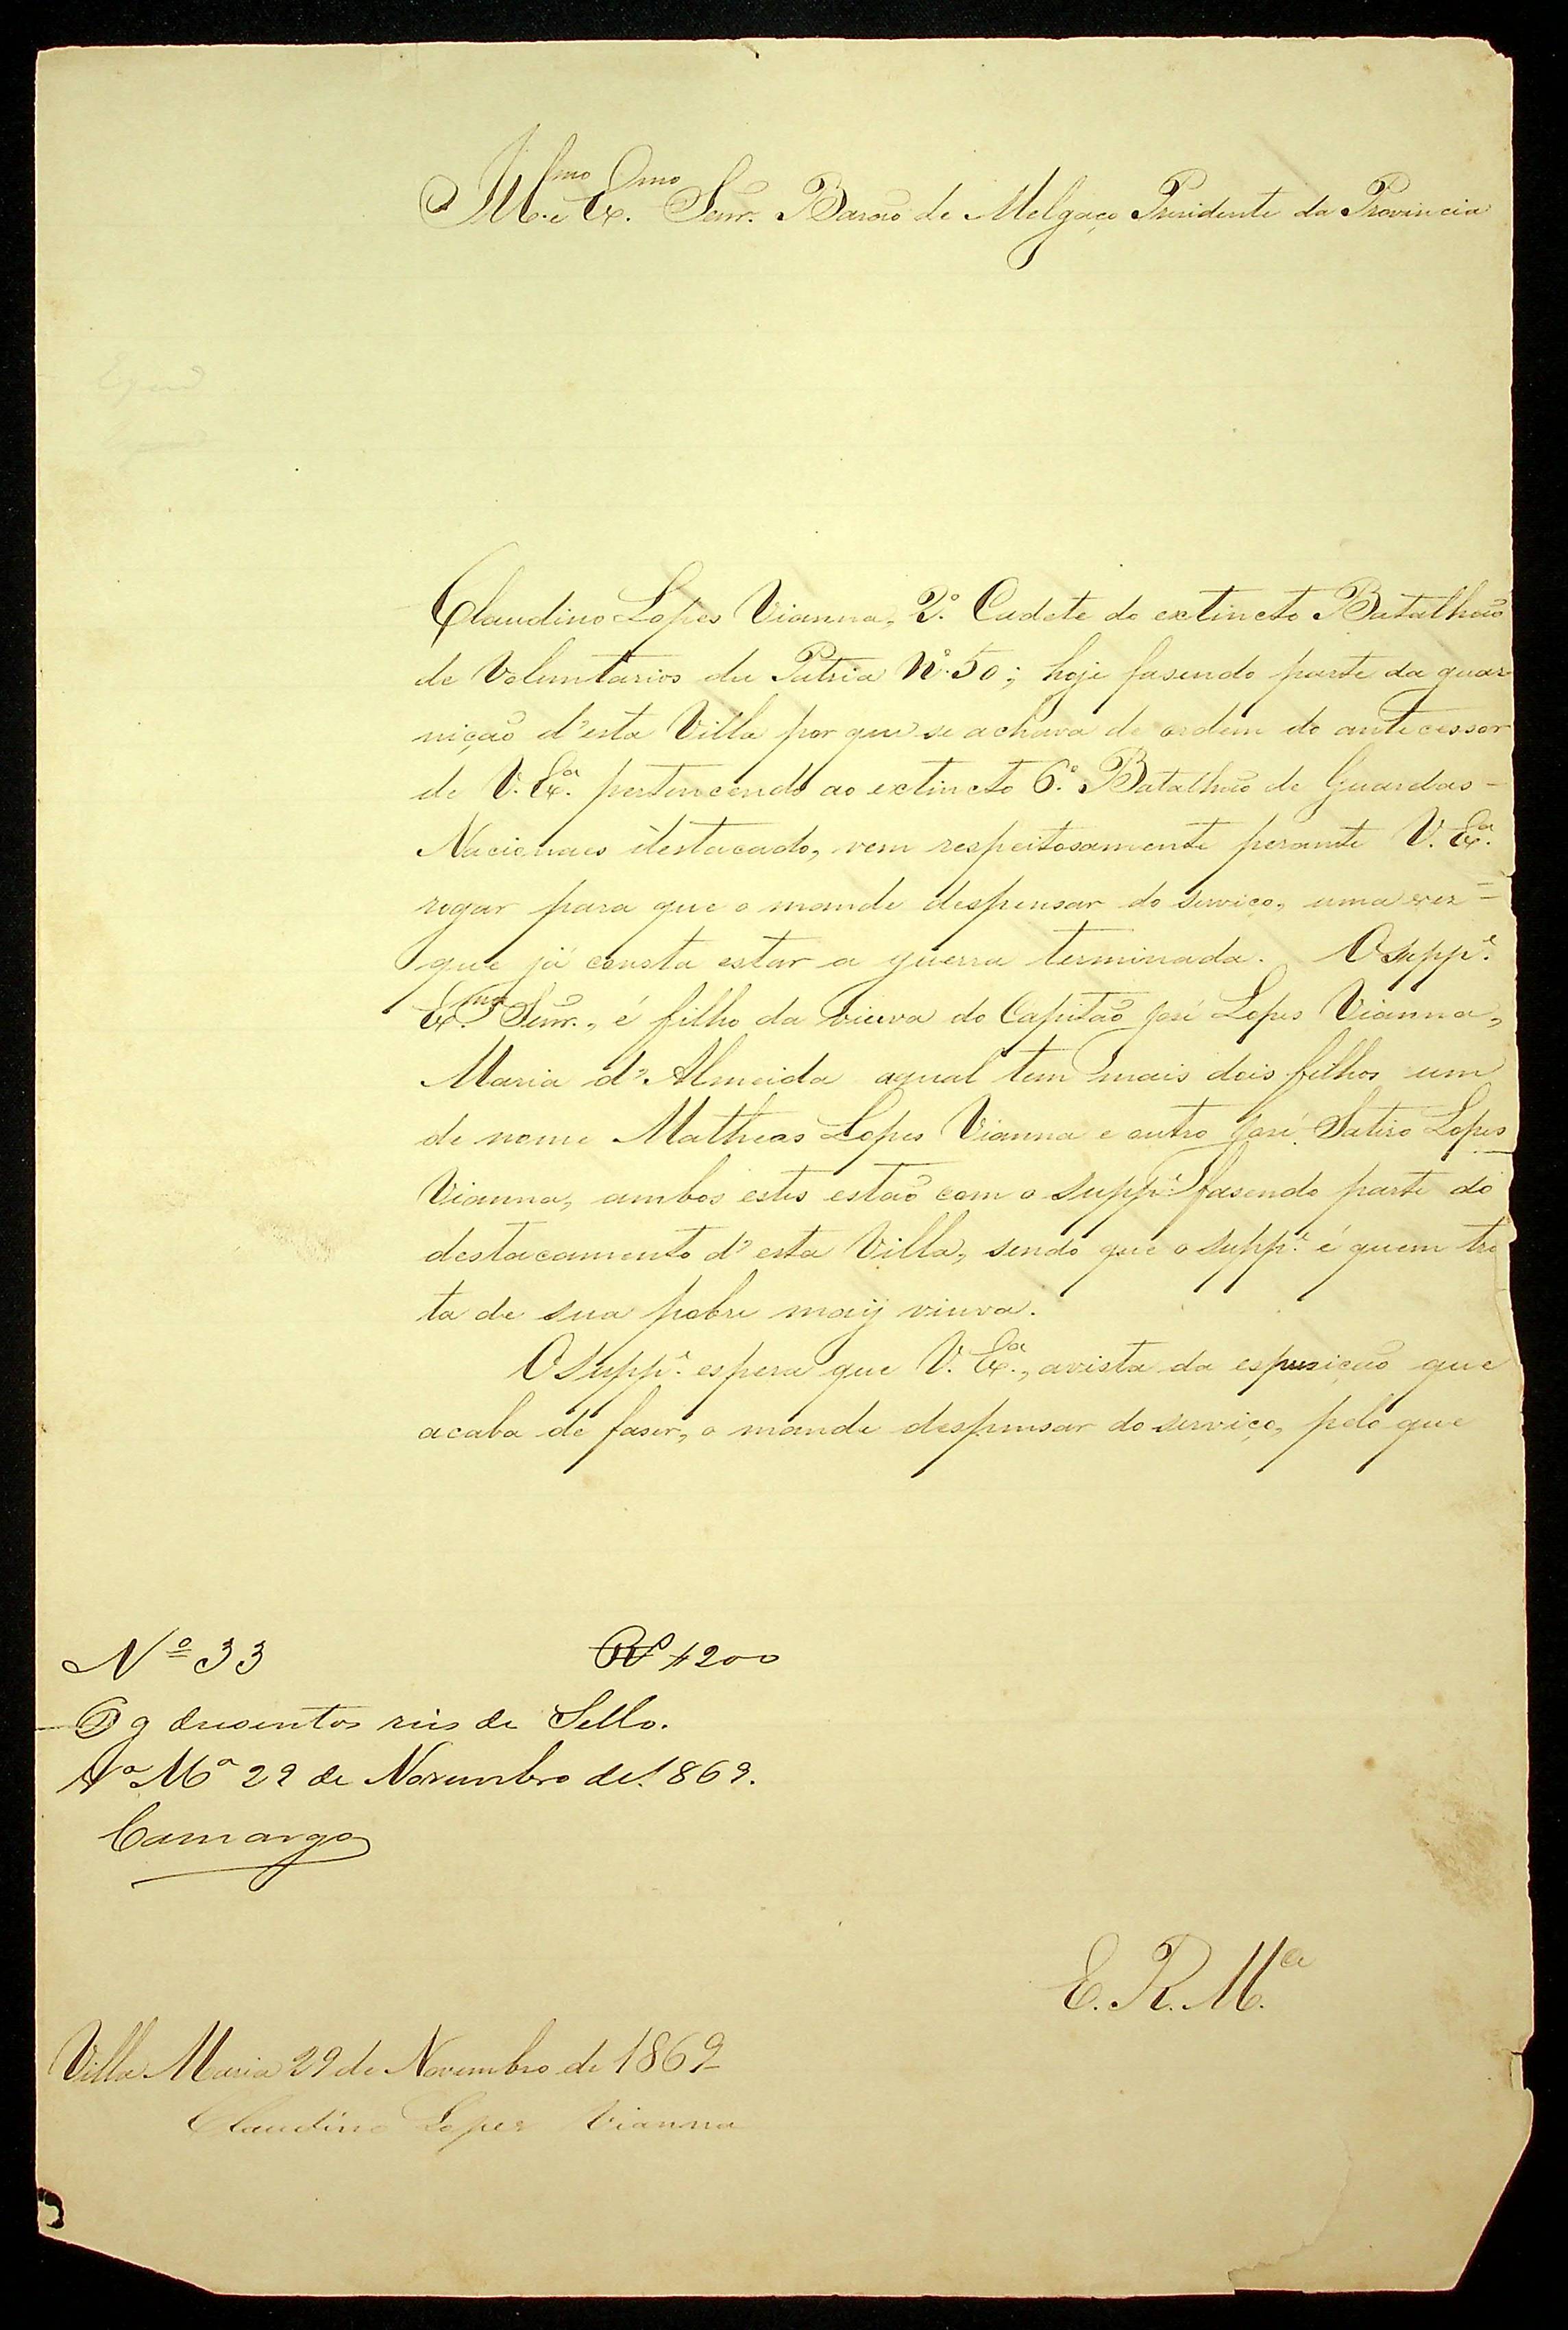 Illmo. e Exmo. Senr. Barão de Melgaço Presidente da Provincia
Claudino Lopes Vianna, 2º. Cadete do extincto Batalhão
de Voluntarios da Patria Nº. 50; hoje fasendo parte da guar
nição d'esta Villa por que se achava de ordem do antecessor
de V. Exa. pertencendo ao extincto 6º. Batalhão de Guardas -
Nacionaes destacado, vem respeitosamente perante V. Exa.
rogar para que o mande despensar do serviço, uma vez =
que já consta estar a guerra terminada. O suppe.
Exmo. Senr., é filho da viuva do Capitão José Lopes Vianna,
Maria d'Almeida aqual tem mais dois filhos um
de nome Matheas Lopes Vianna e outro José Satiro Lopes
Vianna, ambos estes estão com o suppe. fasendo parte do
destacamento d'esta Villa, sendo que o suppe. é quem tra
ta de sua pobre maÿ viuva.
O suppe. espera que V. Exa., avista da esposição que
acaba de faser, o mande despensar do serviço, pelo que
Nº 33 Rs $200
Pg dusentos reis de Sello.
Va Ma 29 de Novembro de 1869.
Camargo
E. R. Mce.
Villa Maria 29 de Novembro de 1869
Claudino Lopes Vianna